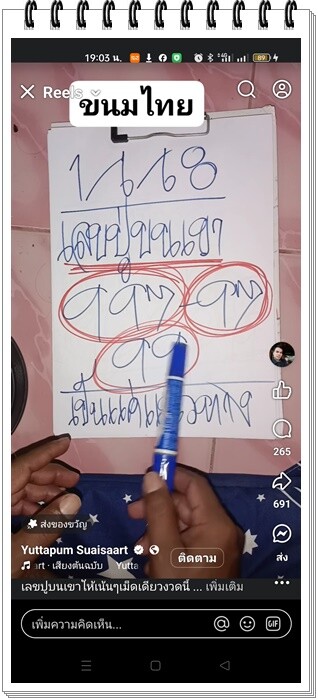 19:03 น.
89
Reels
ขนมไทย
1 เม 68
เลขปู่บนเขา
เป็นแค่แนวทาง
265
691
ส่งของขวัญ
ส่ง
Yuttapum Suaisaart
ติดตาม
art · เสียงต้นฉบับ Yutta
เลขปู่บนเขาให้เน้นๆเม็ดเดียวงวดนี้ ... เพิ่มเติม
เพิ่มความคิดเห็น...
GIF